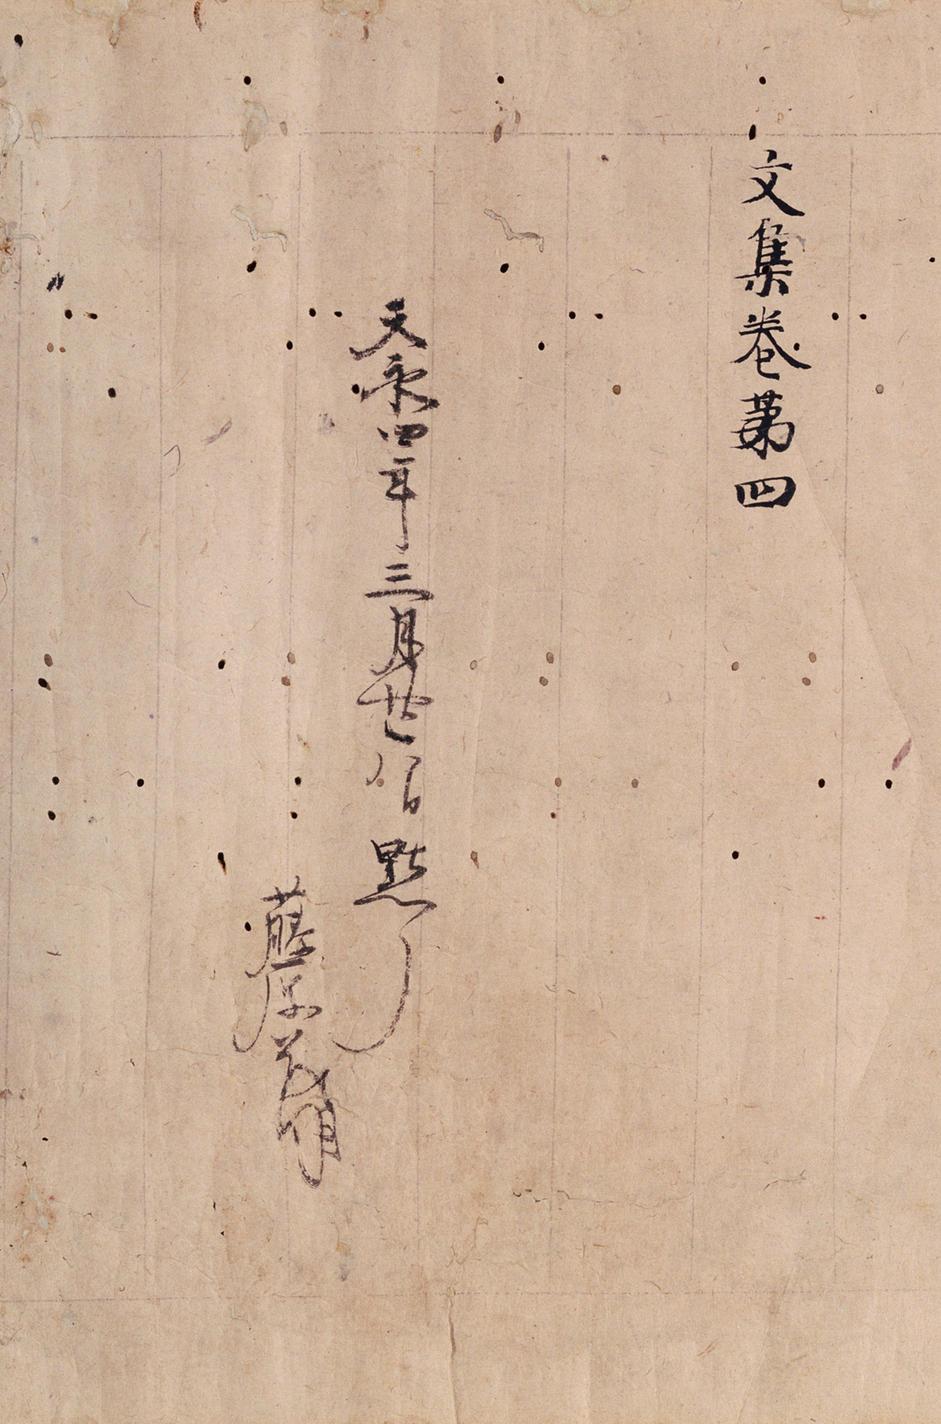 文集巻第四
天永四年三月廿八日點了
藤原茂明